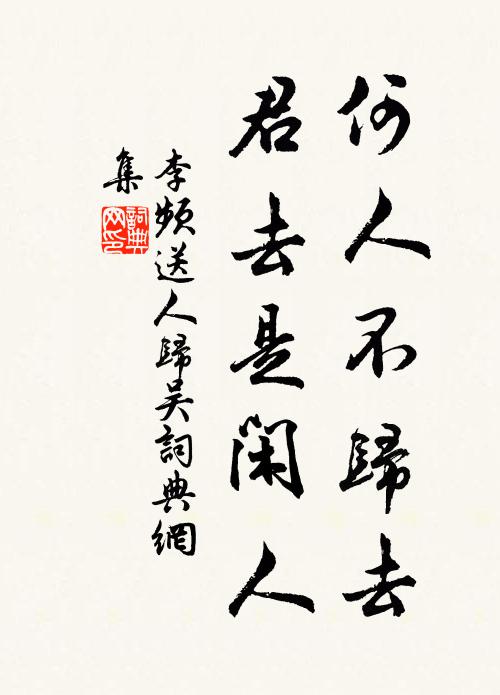 何人不歸去
君去是閑人
李頻送人歸吴詞典網
集
詞典
网印